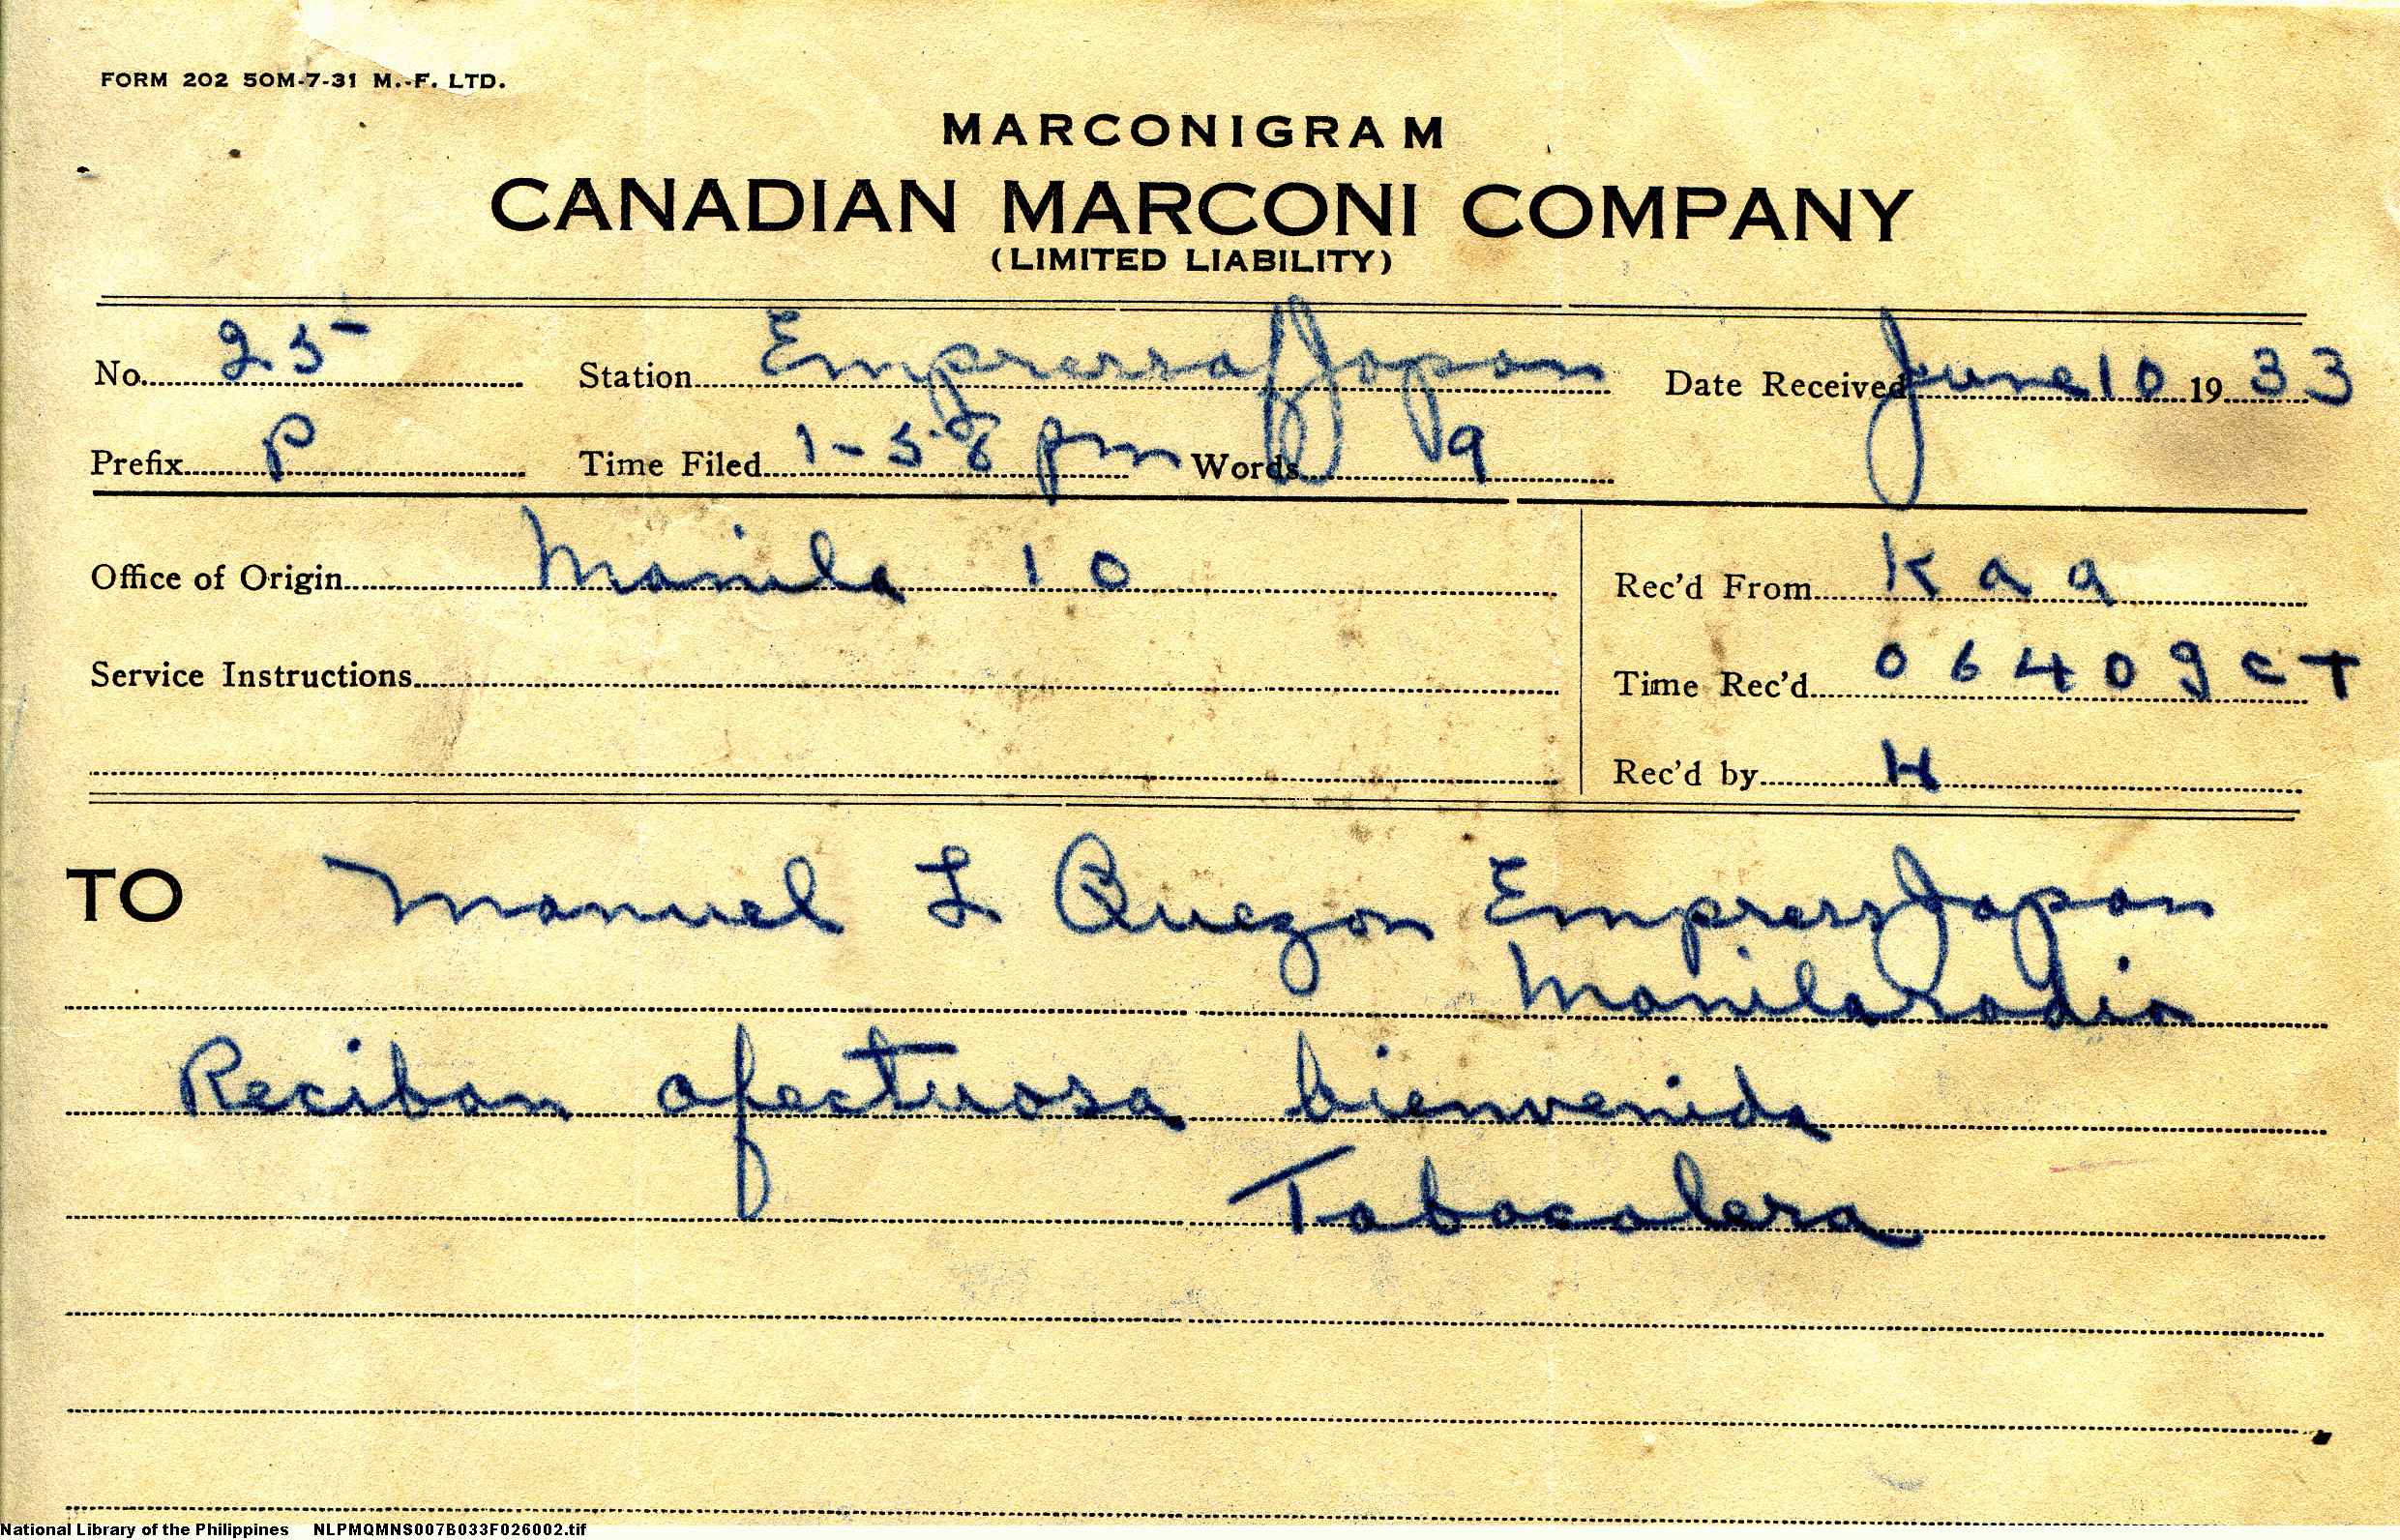 FORM 202 50M-7-31 M.-F. LTD.
MARCONIGRAM
CANADIAN MARCONI COMPANY
(LIMITED LIABILITY)
No. 25 Station Empress of Japan Date Received June 10 19 33
Prefix P Time Filed 1-58 pm Words 9
Office of Origin Manila 10 Rec'd From Kaa
Service Instructions Time Rec'd 0640 gct
Rec'd by H
TO Manuel L Quezon Empress Japan
Manilaradio
Reciban afectuosa bienvenida
Tabacalera
National Library of the Philippines NLPMQMNS007B033F026002.tif